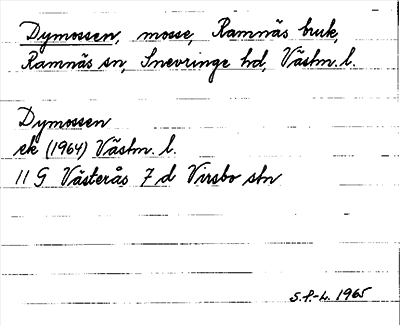 Dymossen, mosse, Ramnäs bruk,
Ramnäs sn, Snevringe hd, Västm. l.
Dymossen
ek (1964) Västm. l.
11 G Västerås 7 d Virsbo stn
S.P.-L. 1965